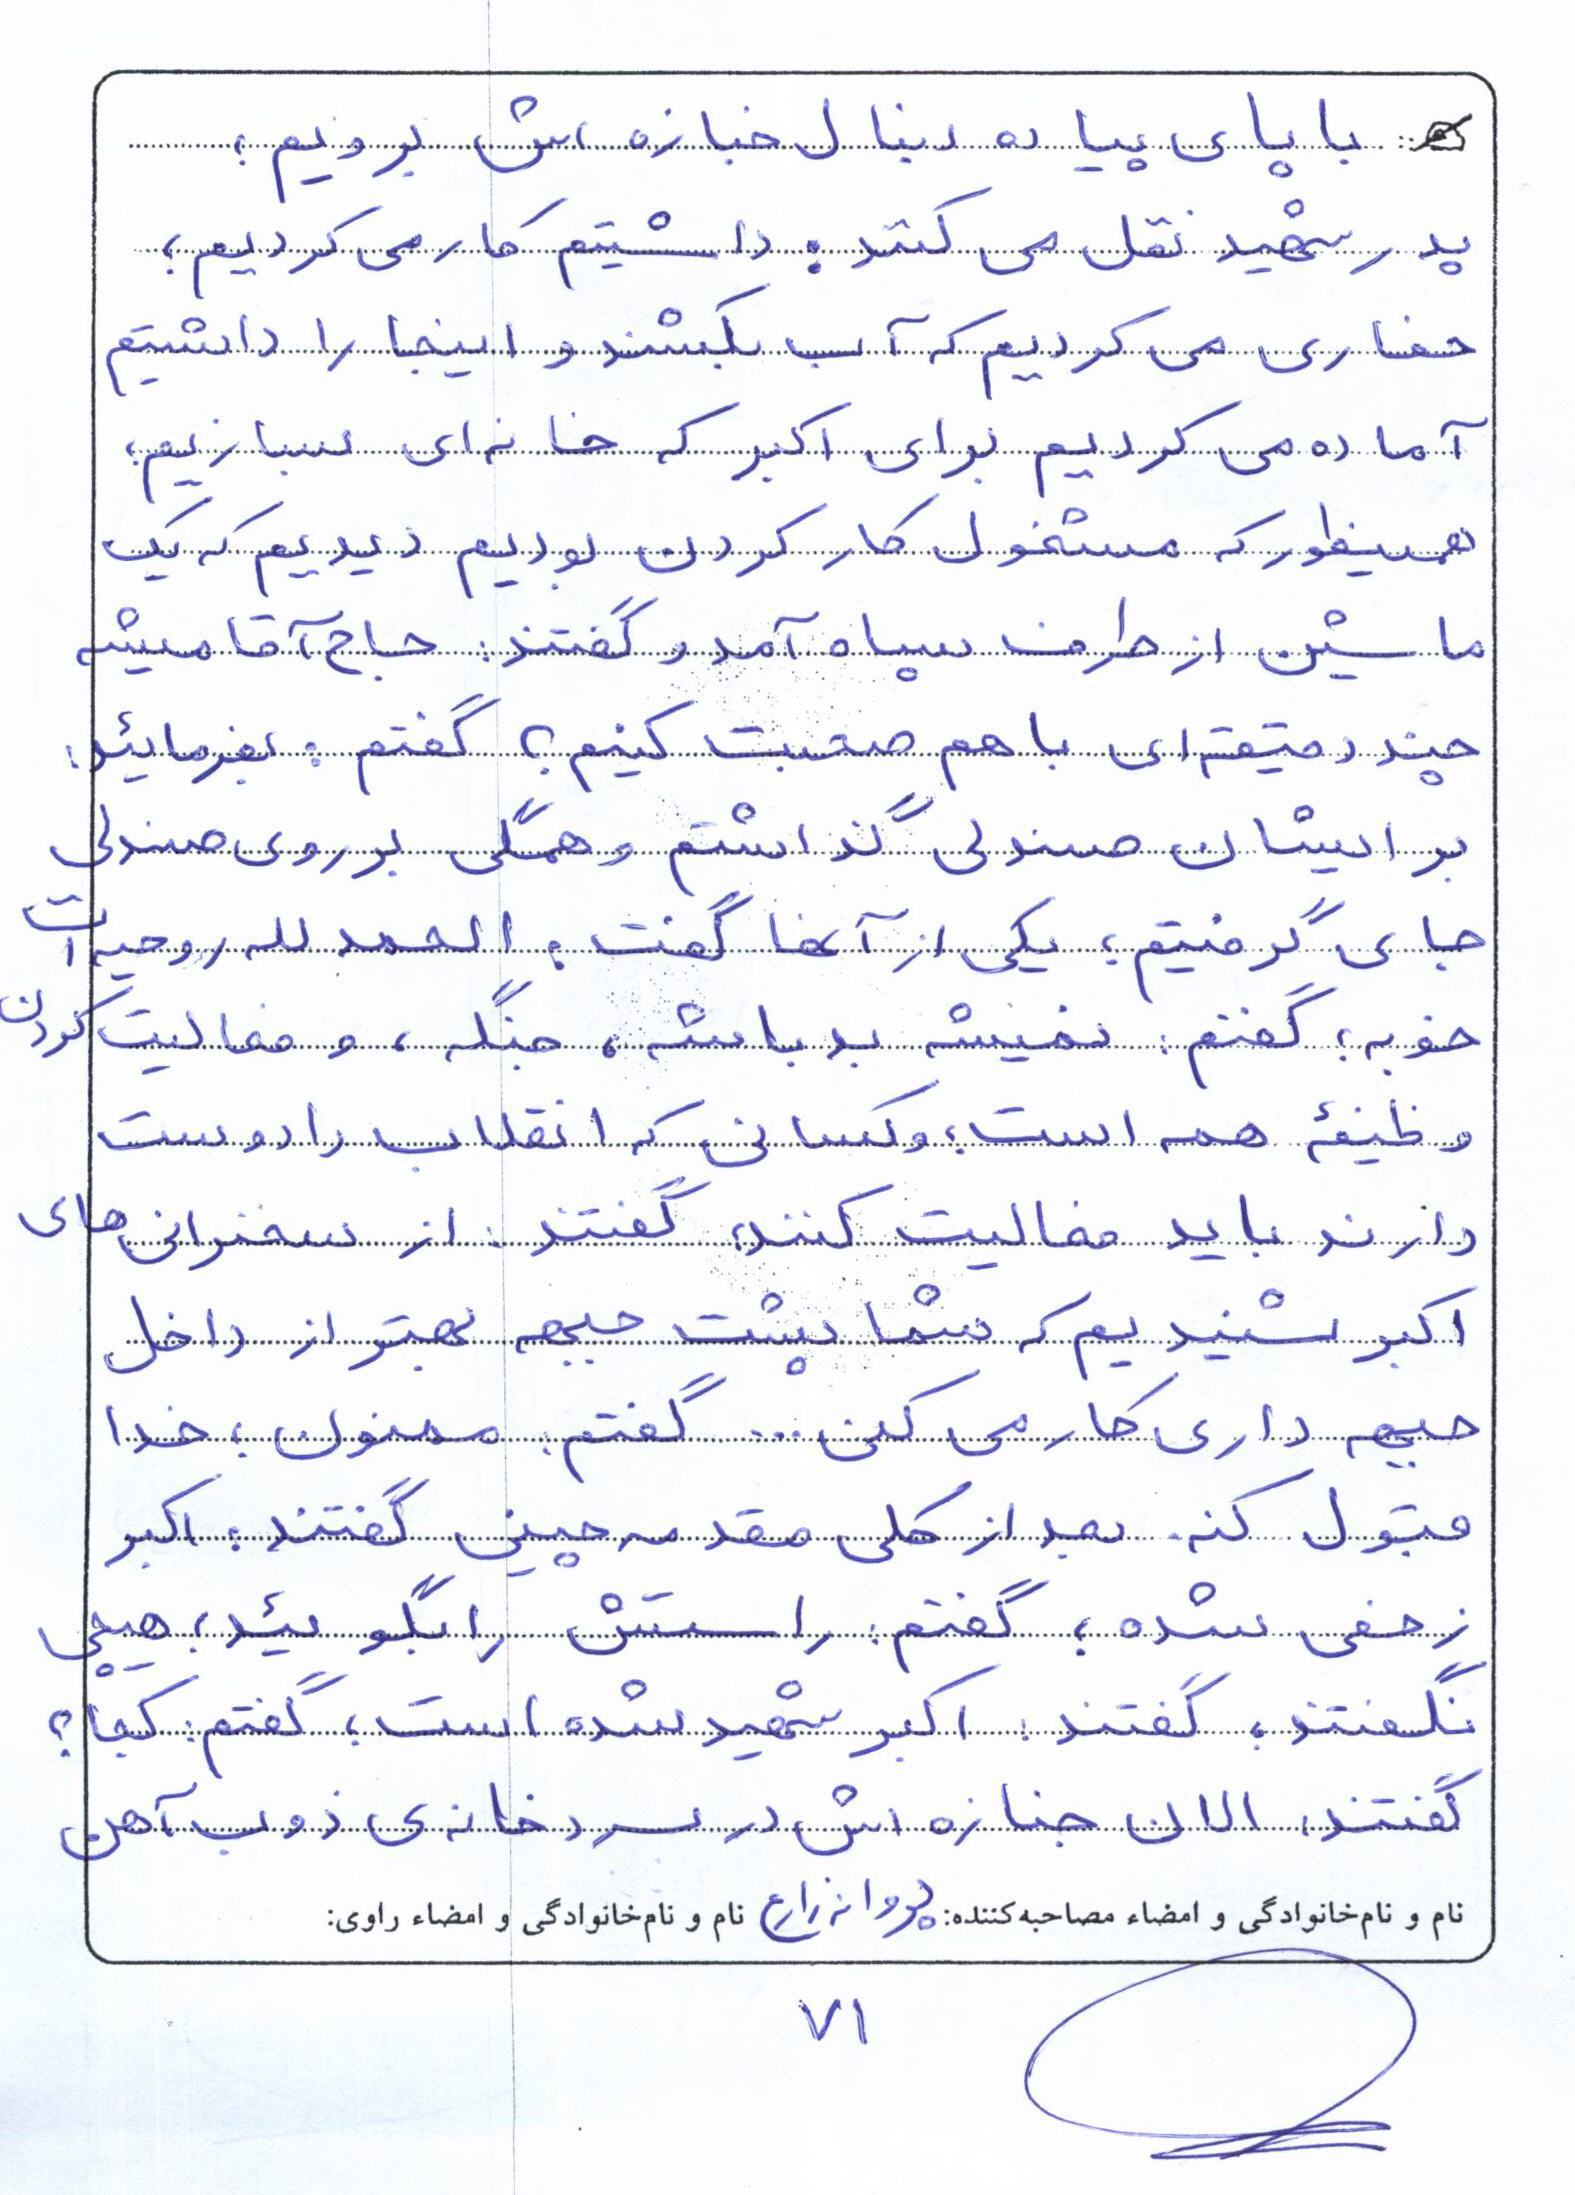 با پای پیاده دنبال جنازه اش برویم؛
پدر شهید نقل می کنند: داشتیم کار می کردیم؛
حفاری می کردیم که آب بکشند و اینجا را داشتیم
آماده می کردیم برای اکبر که خانه ای بسازیم؛
همینطور که مشغول کار کردن بودیم دیدیم که یک
ماشین از طرف سپاه آمد و گفتند: حاج آقا میشه
چند دقیقه ای با هم صحبت کنیم؟ گفتم: بفرمائید؛
برایشان صندلی گذاشتم و همگی بر روی صندلی
جای گرفتیم؛ یکی از آنها گفت: الحمدلله روحیه ات
خوبه؛ گفتم: نمیشه بد باشه، جنگه، و فعالیت کردن
وظیفۀ همه است؛ و کسانی که انقلاب را دوست
دارند باید فعالیت کنند، گفتند: از سخنرانی های
اکبر شنیدیم که شما پشت جبهه بهتر از داخل
جبهه داری کار می کنی... گفتم: ممنون؛ خدا
قبول کنه. بعد از کلی مقدمه چینی گفتند: اکبر
زخمی شده؛ گفتم: راستش را بگوئید؛ هیچی
نگفتند؛ گفتند: اکبر شهید شده است؛ گفتم: کجا؟
گفتند: الان جنازه اش در سردخانه ی ذوب آهن
نام و نام‌خانوادگی و امضاء مصاحبه‌کننده: پروانه زارع نام و نام‌خانوادگی و امضاء راوی:
۷۱